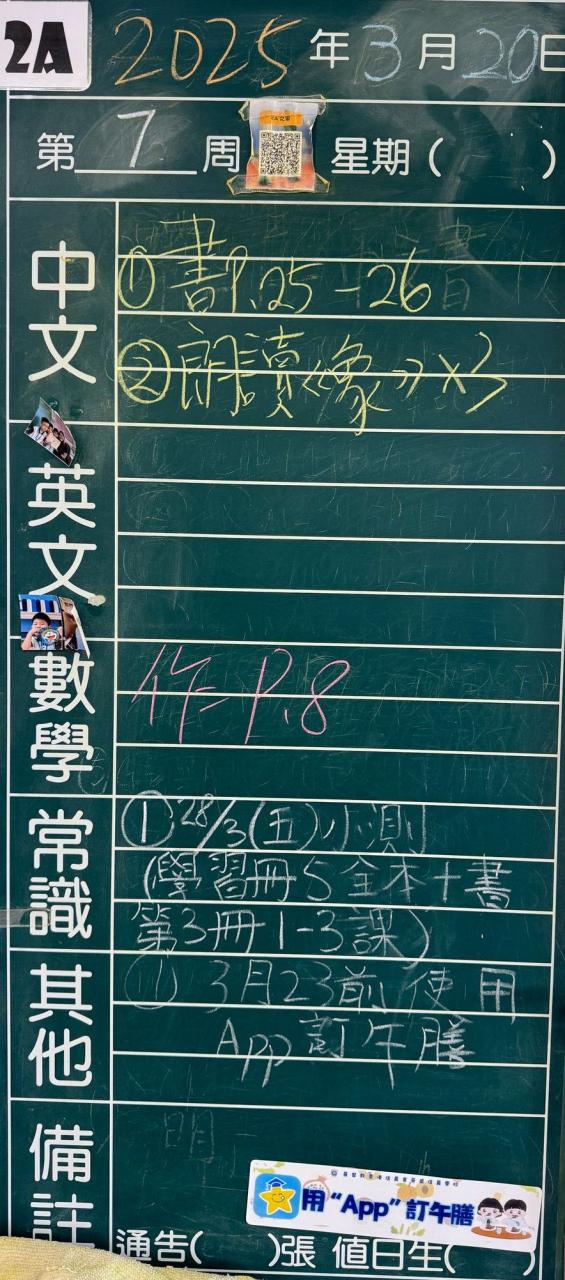 2A
2025年3月20日
第7周 星期( )
中文
①書P.25-26
②朗讀《像》×3
英文
數學
作P.8
常識
①28/3(五)小測
(學習冊5全本+書
第3冊1-3課)
其他
① 3月23前使用
App訂午膳
備註
用“App”訂午膳
通告( )張 值日生( )